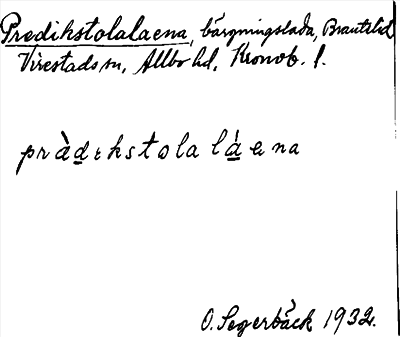 Predikstolalaena, bärgningslada, Brantelid
Virestads sn, Allbo hd, Kronob. l.
pràdıkstola láena
O. Segerbäck 1932.